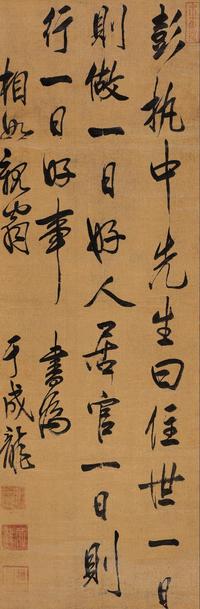 彭执中先生曰住世一日
則做一日好人居官一日則
行一日好事
書為
相如親翁
于成龍